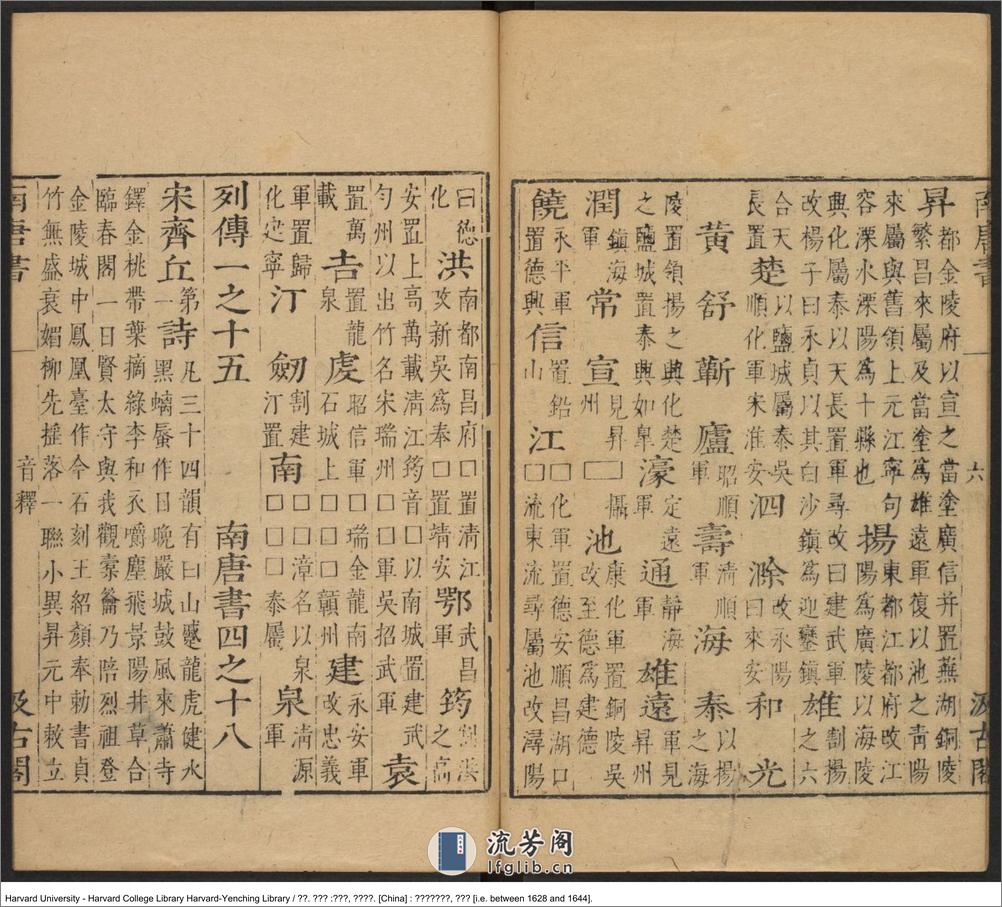 南唐書 一 六 汲古閣
昇都金陵府以宣之當塗廣信并置蕪湖銅陵
繁昌來屬及當塗爲雄遠軍復以池之靑陽
來屬與舊領上元江寧句
容溧水溧陽爲十縣也揚東都江都府改江
陽爲廣陵以海陵
興化屬泰以天長置軍尋改曰建武軍割揚
改楊子曰永貞以其白沙鎮爲迎鑾鎮雄之六
合天
長置楚以鹽城屬泰吳
順化軍宋淮安泗滁改永陽
曰來安和光
黄舒蘄廬昭順
軍壽清順
軍海泰以揚
之海
陵置領揚之興化楚
之鹽城置泰興如皐濠定遠
軍通靜海
軍雄遠軍見
昇州
潤鎮海
軍常宣見昇□攝
州□池康化軍置銅陵吳
改至德爲建德
饒永平軍
置德興信置鉛
山江□化軍置德安順昌湖口
□流東流尋屬池改潯陽
曰德
化洪南都南昌府□置清江
攻新吳爲奉□置靖安鄂武昌
軍筠割洪
之高
安置上高萬載清江筠音□以南城置建武
勻州以出竹名宋瑞州□軍吳招武軍袁
置萬
載吉置龍
泉虔昭信軍□瑞金龍南
石城上□□□贛州建永安軍
改忠義
軍置歸
化建寧汀劒割建□□漳名以泉
汀置南□□□□泰屬泉淸源
軍
列傳一之十五 南唐書四之十八
宋齊丘第
一詩凡三十四韻有曰山蹙龍虎健水
黑螭蜃作日晚嚴城鼓風來蕭寺
鐸金桃帶葉摘綠李和衣嚼塵飛景陽井草合
臨春閣一日賢太守與我觀橐籥乃陪烈祖登
金陵城中鳳凰臺作今石刻王紹顏奉勅書貞
竹無盛衰媚柳先揺落一聯小異昇元中敕立
南唐書 一 音釋 汲古閣
流芳阁
lfglib.cn
Harvard University - Harvard College Library Harvard-Yenching Library / ??. ??? :???, ????. [China] : ???????, ??? [i.e. between 1628 and 1644].